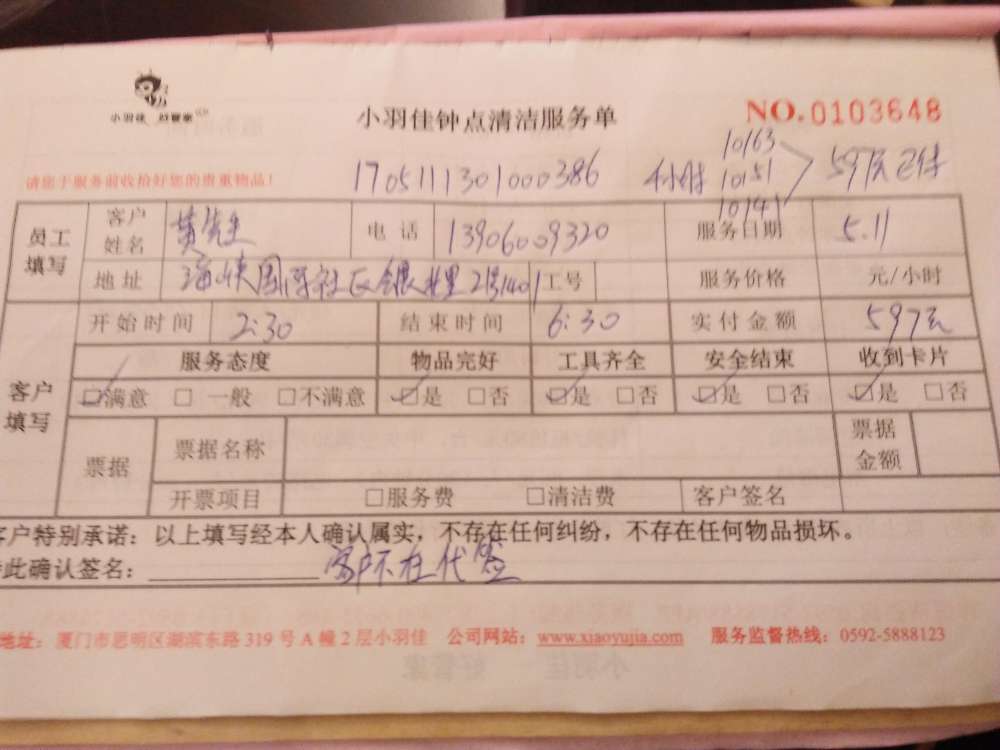 小羽佳 好管家
小羽佳钟点清洁服务单
NO.0103648
请您于服务前收拾好您的贵重物品!
1705111301000386
10163
10151
10141
597元已付
员工填写
客户姓名 黄先生 电话 13906009320 服务日期 5.11
地址 海峡国际社区 2号1401 工号 服务价格 元/小时
客户填写
开始时间 2:30 结束时间 6:30 实付金额 597元
服务态度 物品完好 工具齐全 安全结束 收到卡片
☑满意 □一般 □不满意 ☑是 □否 ☑是 □否 ☑是 □否 ☑是 □否
票据 票据名称 票据金额
开票项目 □服务费 □清洁费 客户签名
客户特别承诺：以上填写经本人确认属实，不存在任何纠纷，不存在任何物品损坏。
此确认签名：客户不在代签
地址：厦门市思明区湖滨东路319号A幢2层小羽佳 公司网站：www.xiaoyujia.com 服务监督热线：0592-5888123